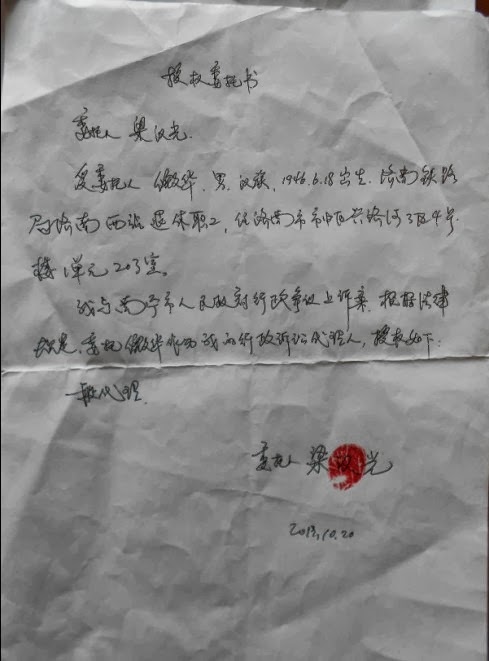 授权委托书
委托人 梁汉光
受委托人 徽华，男，汉族，1946.6.18出生，济南铁路
局济南西站退休职工，住济南市市中区兴济河3区4号
楼1单元203室。
我与南宁市人民政府行政争议上诉案，根据法律
规定，委托 徽华作为我的行政诉讼代理人，授权如下：
一般代理
委托人 梁 光
2013.10.20